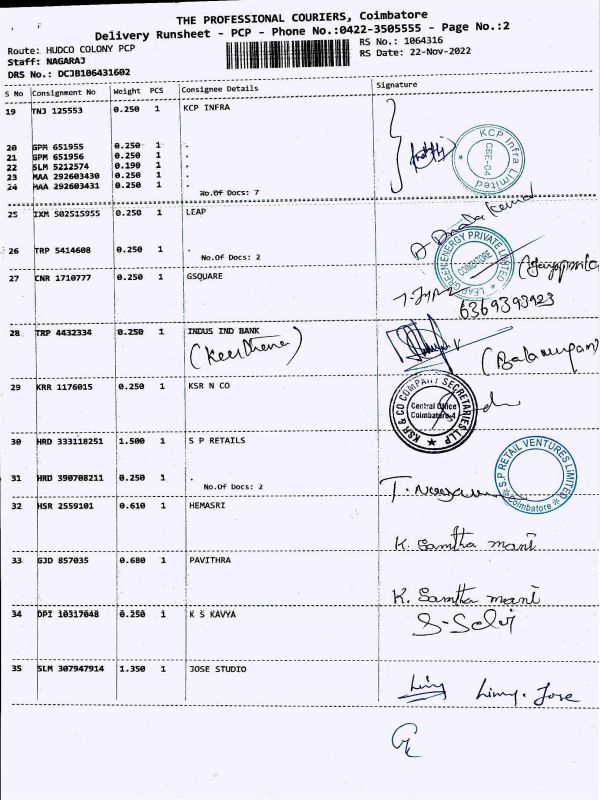 THE PROFESSIONAL COURIERS, Coimbatore
Delivery Runsheet - PCP - Phone No.:0422-3505555 - Page No.:2
Route: HUDCO COLONY PCP
RS No.: 1064316
Staff: NAGARAJ
RS Date: 22-Nov-2022
DRS No.: DCJB106431602
S No Consignment No Weight PCS Consignee Details Signature
19 TNJ 125553 0.250 1 KCP INFRA
20 GPM 651955 0.250 1 .
21 GPM 651956 0.250 1 .
22 SLM 5212574 0.190 1 .
23 MAA 292603430 0.250 1 .
24 MAA 292603431 0.250 1 .
No.Of Docs: 7
KCP Infra Limited
CBE-04
25 IXM 502515955 0.250 1 LEAP
26 TRP 5414608 0.250 1 .
No.Of Docs: 2
LEAP GREEN ENERGY PRIVATE LIMITED
COIMBATORE
27 CNR 1710777 0.250 1 GSQUARE
6369393923
28 TRP 4432334 0.250 1 INDUS IND BANK
(Keerthana)
(Balamurugan)
29 KRR 1176015 0.250 1 KSR N CO
KSR & CO COMPANY SECRETARIES LLP
Central Office
Coimbatore-4
30 HRD 333118251 1.500 1 S P RETAILS
31 HRD 390708211 0.250 1 .
No.Of Docs: 2
S.P RETAIL VENTURES LIMITED
Coimbatore
32 HSR 2559101 0.610 1 HEMASRI
K. Samtha mani
33 GJD 857035 0.680 1 PAVITHRA
K. Samtha mani
34 DPI 10317048 0.250 1 K S KAVYA
S-Selvi
35 SLM 307947914 1.350 1 JOSE STUDIO
Limy. Jose